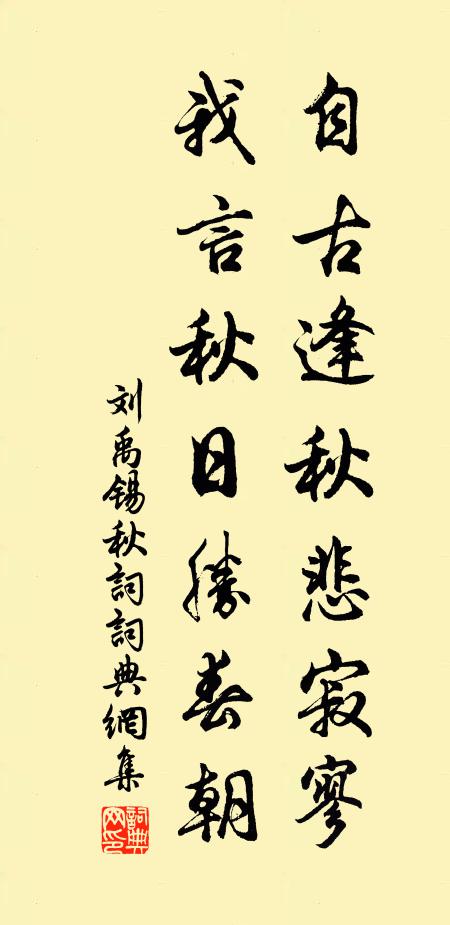 自古逢秋悲寂寥
我言秋日勝春朝
刘禹锡秋詞詞典網集
詞典網印